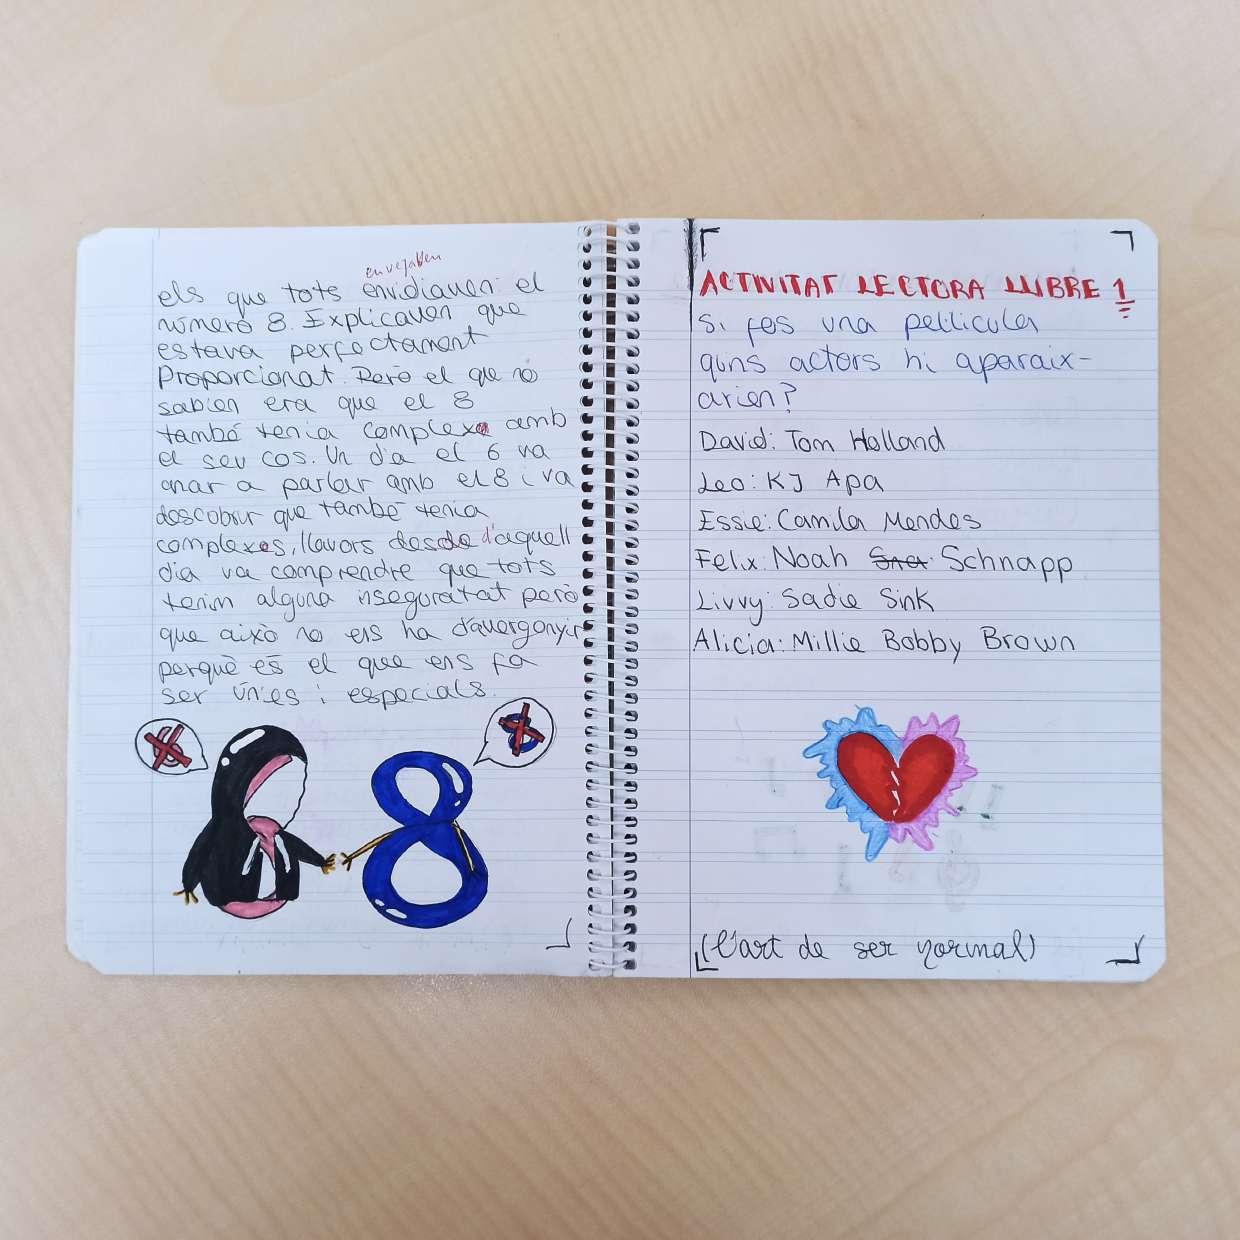 envejaben
els que tots envidiaven: el
número 8. Explicaven que
estava perfectament
Proporcionat. Però el que no
sabien era que el 8
també tenia complexe amb
el seu cos. Un dia el 6 va
anar a parlar amb el 8 i va
descobrir que també tenia
complexos, llavors desde d'aquell
dia va comprendre que tots
tenim alguna inseguratat però
que això no ens ha d'avergonyir
perquè és el que ens fa
ser únies i especials.
6
8
8
ACTIVITAT LECTORA LLIBRE 1
Si fes una pel·licula
quins actors hi aparaix-
arien?
David: Tom Holland
Leo: KJ Apa
Essie: Camila Mendes
Felix: Noah Schnapp
Livvy: Sadie Sink
Alicia: Millie Bobby Brown
(L'art de ser normal)